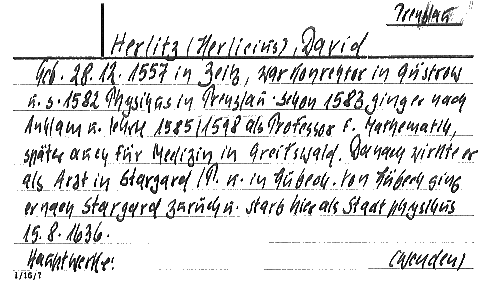 Prenzlau
Herlitz (Herlicius), David
Geb. 28.12.1557 in Zeitz, war Konrektor in Güstrow
u. s. 1582 Physikus in Prenzlau. Schon 1583 ging er nach
Anklam u. lehrte 1585/1598 als Professor f. Mathematik,
später auch für Medizin in Greifswald. Danach wirkte er
als Arzt in Stargard /P. u. in Lübeck. Von Lübeck ging
er nach Stargard zurück u. starb hier als Stadtphysikus
15.8.1636.
Hauptwerke: (wenden)